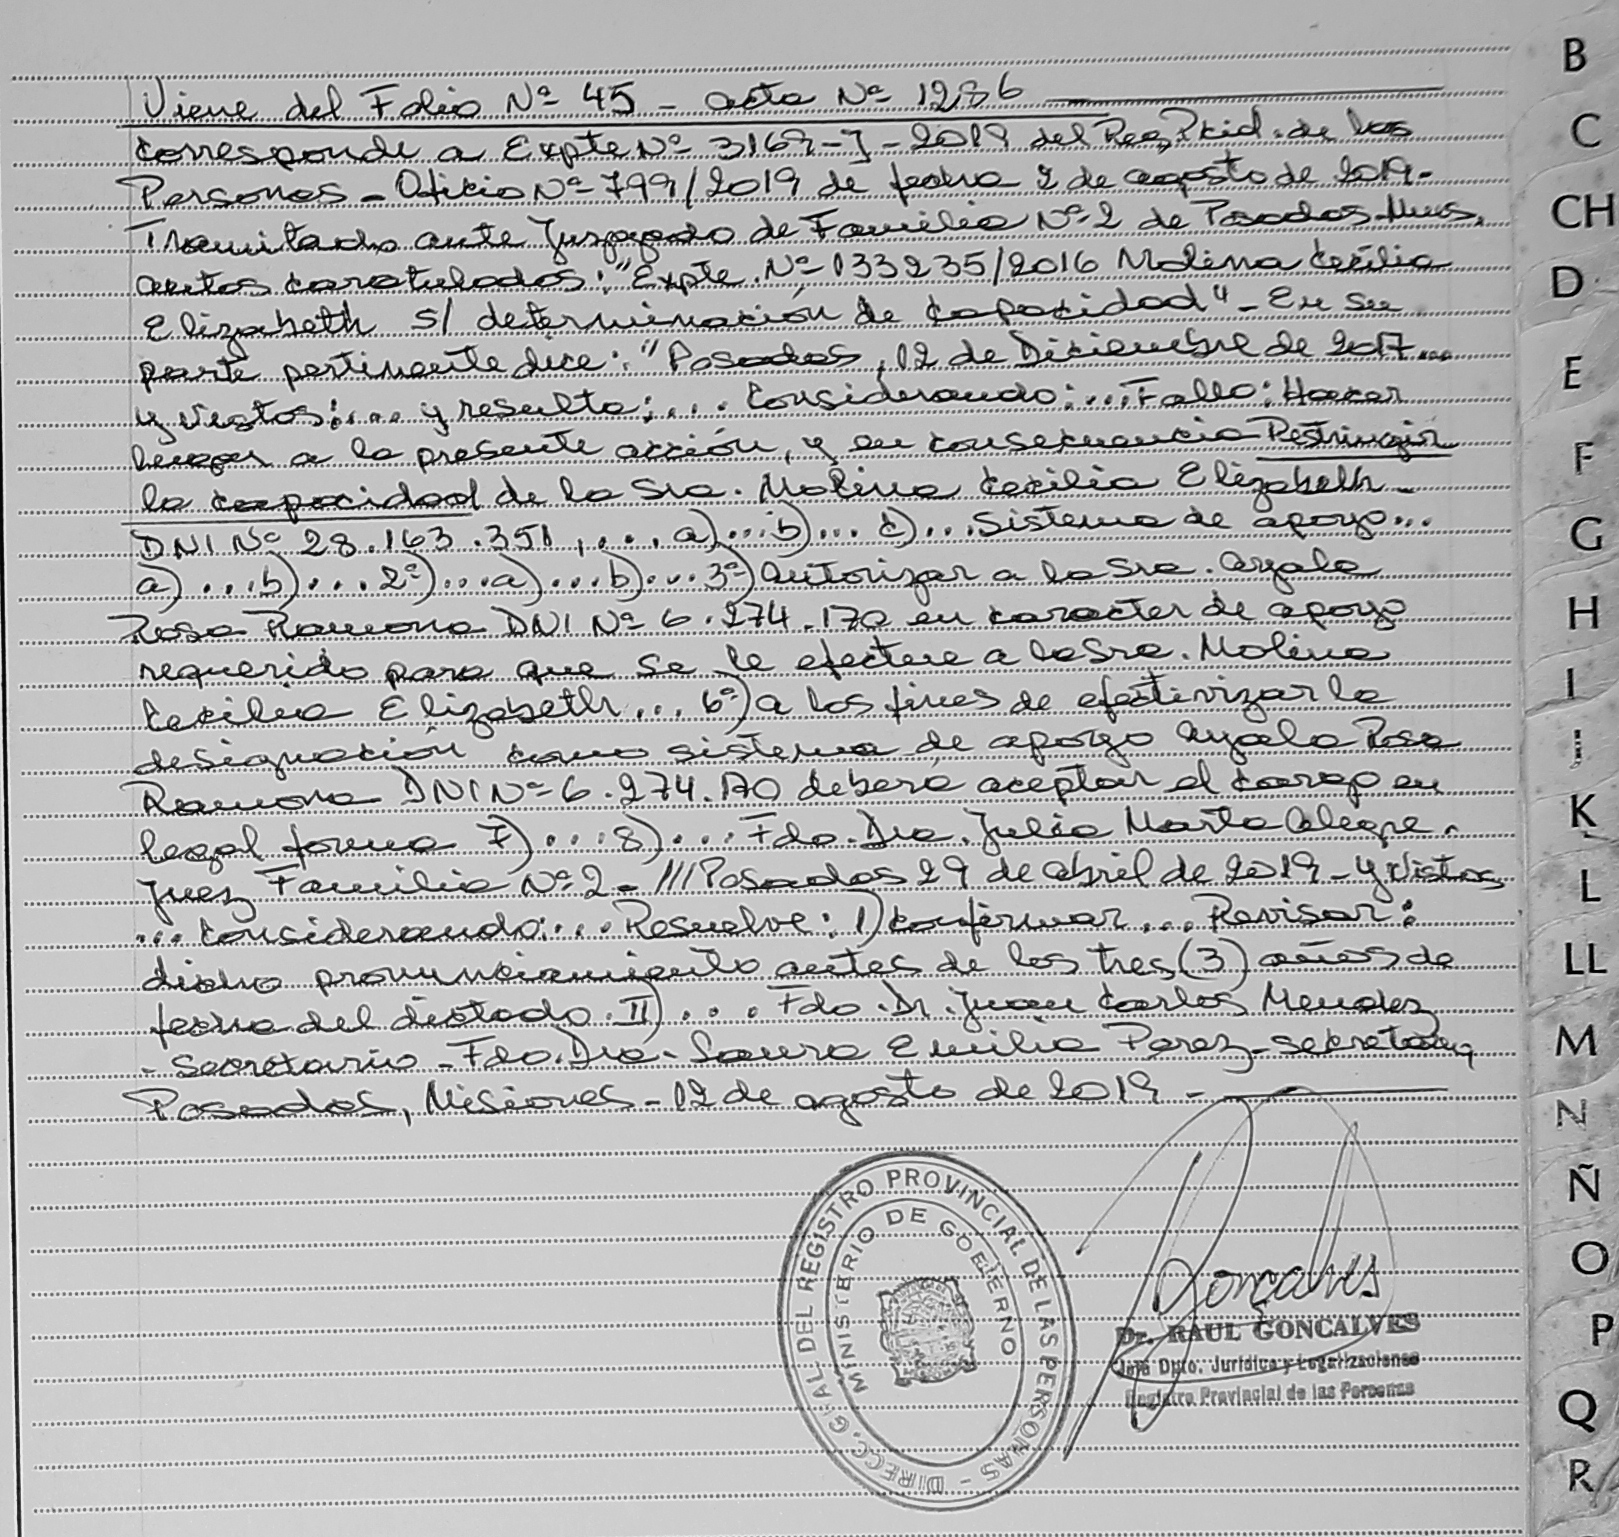 Viene del Folio Nº 45 - acta Nº 1286
Corresponde a Expte Nº 3169-J-2019 del Reg. Pcial. de las
Personas - Oficio Nº 799/2019 de fecha 2 de agosto de 2019-
Tramitado ante Juzgado de Familia Nº 2 de Posadas Mnes.
autos caratulados: "Expte. Nº 133235/2016 Molina Cecilia
Elizabeth s/ determinación de capacidad" - En su
parte pertinente dice: "Posadas, 12 de Diciembre de 2017...
y vistos:... y resulta:... Considerando:... Fallo: Hacer
lugar a la presente acción, y en consecuencia Restringir
la capacidad de la Sra. Molina Cecilia Elizabeth -
DNI Nº 28.163.351, ... a)... b)... c)... Sistema de apoyo...
a)... b)... 2º)... a)... b)... 3º) autorizar a la Sra. Ayala
Rosa Ramona DNI Nº 6.274.170 en caracter de apoyo
requerido para que se le efectue a la Sra. Molina
Cecilia Elizabeth... 6º) a los fines de efectivizar la
designación como sistema de apoyo Ayala Rosa
Ramona DNI Nº 6.274.170 deberá aceptar el cargo en
legal forma 7)... 8)... Fdo. Dra. Julia Marta Alegre.
Juez Familia Nº 2 - /// Posadas 29 de abril de 2019 - y Vistos
... Considerando:... Resuelve: 1) Confirmar... Revisar:
dicho pronunciamiento antes de los tres (3) años de
fecha del dictado. II)... Fdo. Dr. Juan Carlos Mendez
- Secretario - Fdo. Dra. Laura Emilia Perez - secretaria
Posadas, Misiones - 12 de agosto de 2019 -
DIRECC. GRAL DEL REGISTRO PROVINCIAL DE LAS PERSONAS -
MINISTERIO DE GOBIERNO
Goncalves
Dr. RAUL GONCALVES
Jefe Dpto. Jurídica y Legalizaciones
Registro Provincial de las Personas
B
C
CH
D
E
F
G
H
I
J
K
L
LL
M
N
Ñ
O
P
Q
R